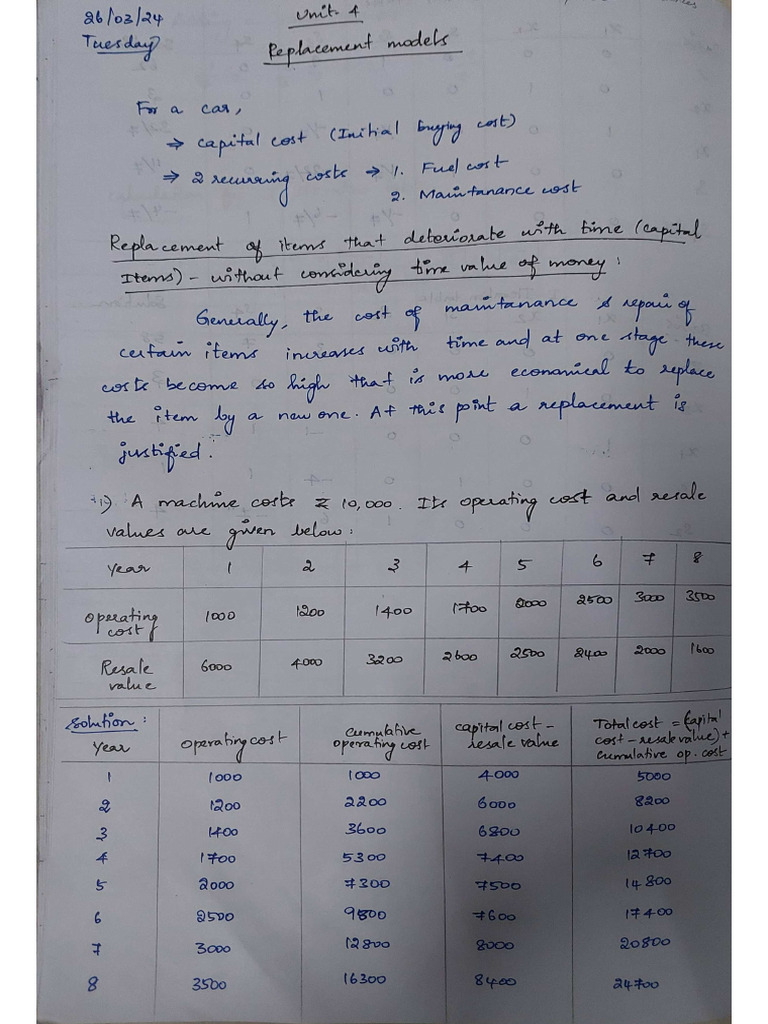 26/03/24
Tuesday
Unit-4
Replacement models
For a car,
⇒ capital cost (Initial buying cost)
⇒ 2 recurring costs → 1. Fuel cost
2. Maintanance cost
Replacement of items that deteriorate with time (capital
Items) - without considering time value of money :
Generally, the cost of maintanance & repair of
certain items increases with time and at one stage these
costs become so high that is more economical to replace
the item by a new one. At this point a replacement is
justified.
1) A machine costs ₹ 10,000. Its operating cost and resale
values are given below :
Year 1 2 3 4 5 6 7 8
Operating cost 1000 1200 1400 1700 2000 2500 3000 3500
Resale value 6000 4000 3200 2600 2500 2400 2000 1600
Solution :
Year operating cost cumulative operating cost capital cost - resale value Total cost = (capital cost - resale value) + cumulative op. cost
1 1000 1000 4000 5000
2 1200 2200 6000 8200
3 1400 3600 6800 10400
4 1700 5300 7400 12700
5 2000 7300 7500 14800
6 2500 9800 7600 17400
7 3000 12800 8000 20800
8 3500 16300 8400 24700